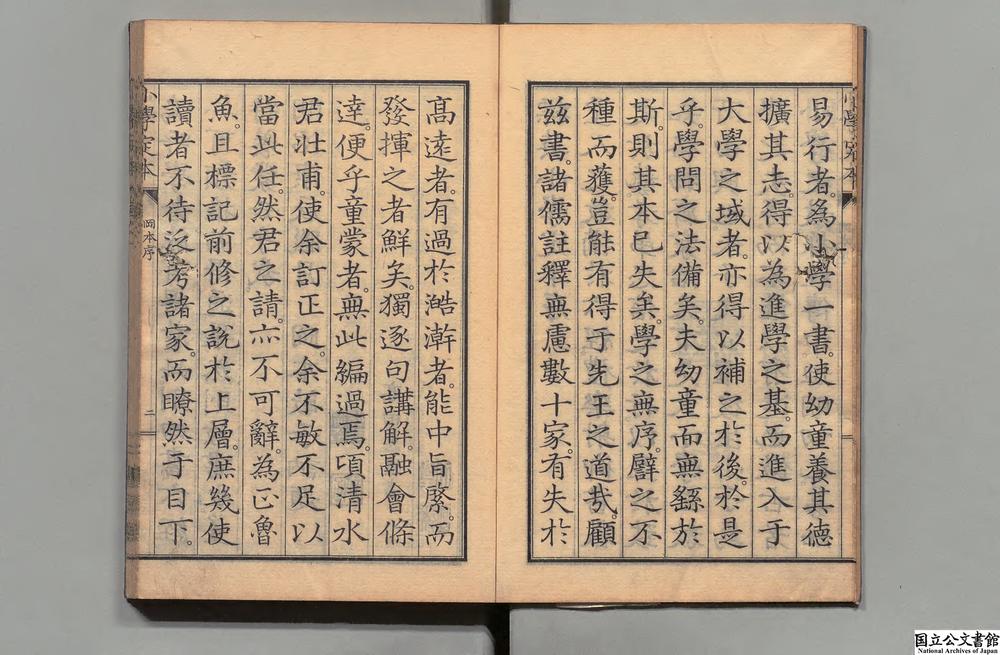 易行者。為小學一書。使幼童養其德
擴其志。得以為進學之基。而進入于
大學之域者。亦得以補之於後。於是
乎。學問之法備矣。夫幼童而無繇於
斯。則其本已失矣。學之無序。譬之不
種而獲。豈能有得于先王之道哉。顧
茲書。諸儒註釋無慮數十家。有失於
高遠者。有過於澔澣者。能中旨綮。而
發揮之者鮮矣。獨逐句講解。融會條
達。便乎童蒙者。無此編過焉。頃清水
君壯甫。使余訂正之。余不敏不足以
當此任。然君之請。亦不可辭。為正魯
魚。且標記前修之說於上層。庶幾使
讀者不待泛考諸家。而瞭然于目下。
小學定本
岡本序
二
国立公文書館
National Archives of Japan